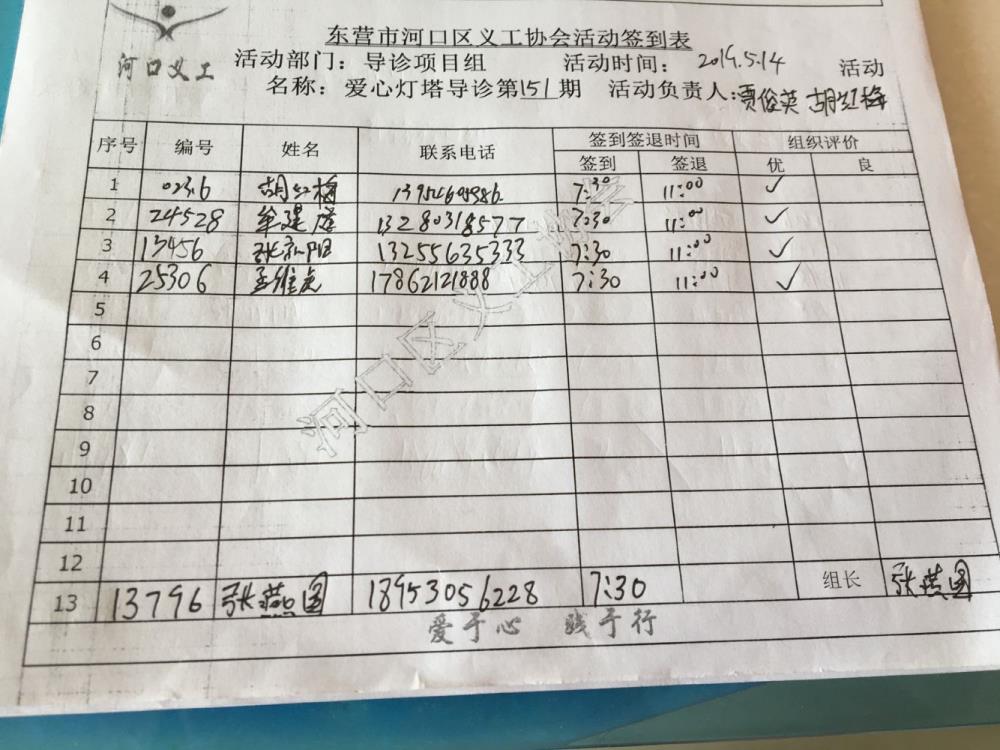 东营市河口区义工协会活动签到表
河口义工
活动部门：导诊项目组 活动时间： 2019.5.14 活动
名称：爱心灯塔导诊第151期 活动负责人：贾俊英 胡红梅
序号 编号 姓名 联系电话 签到签退时间 组织评价
签到 签退 优 良
1 0236 胡红梅 13954605986 7:30 11:00 ✓
2 24528 牟建 13280318577 7:30 11:00 ✓
3 13456 张 13255635333 7:30 11:00 ✓
4 25306 孟维 17862121888 7:30 11:00 ✓
5
6
7
8
9
10
11
12
13 13796 张燕国 18953056228 7:30 组长 张燕国
爱于心 践于行
河口区义工协会